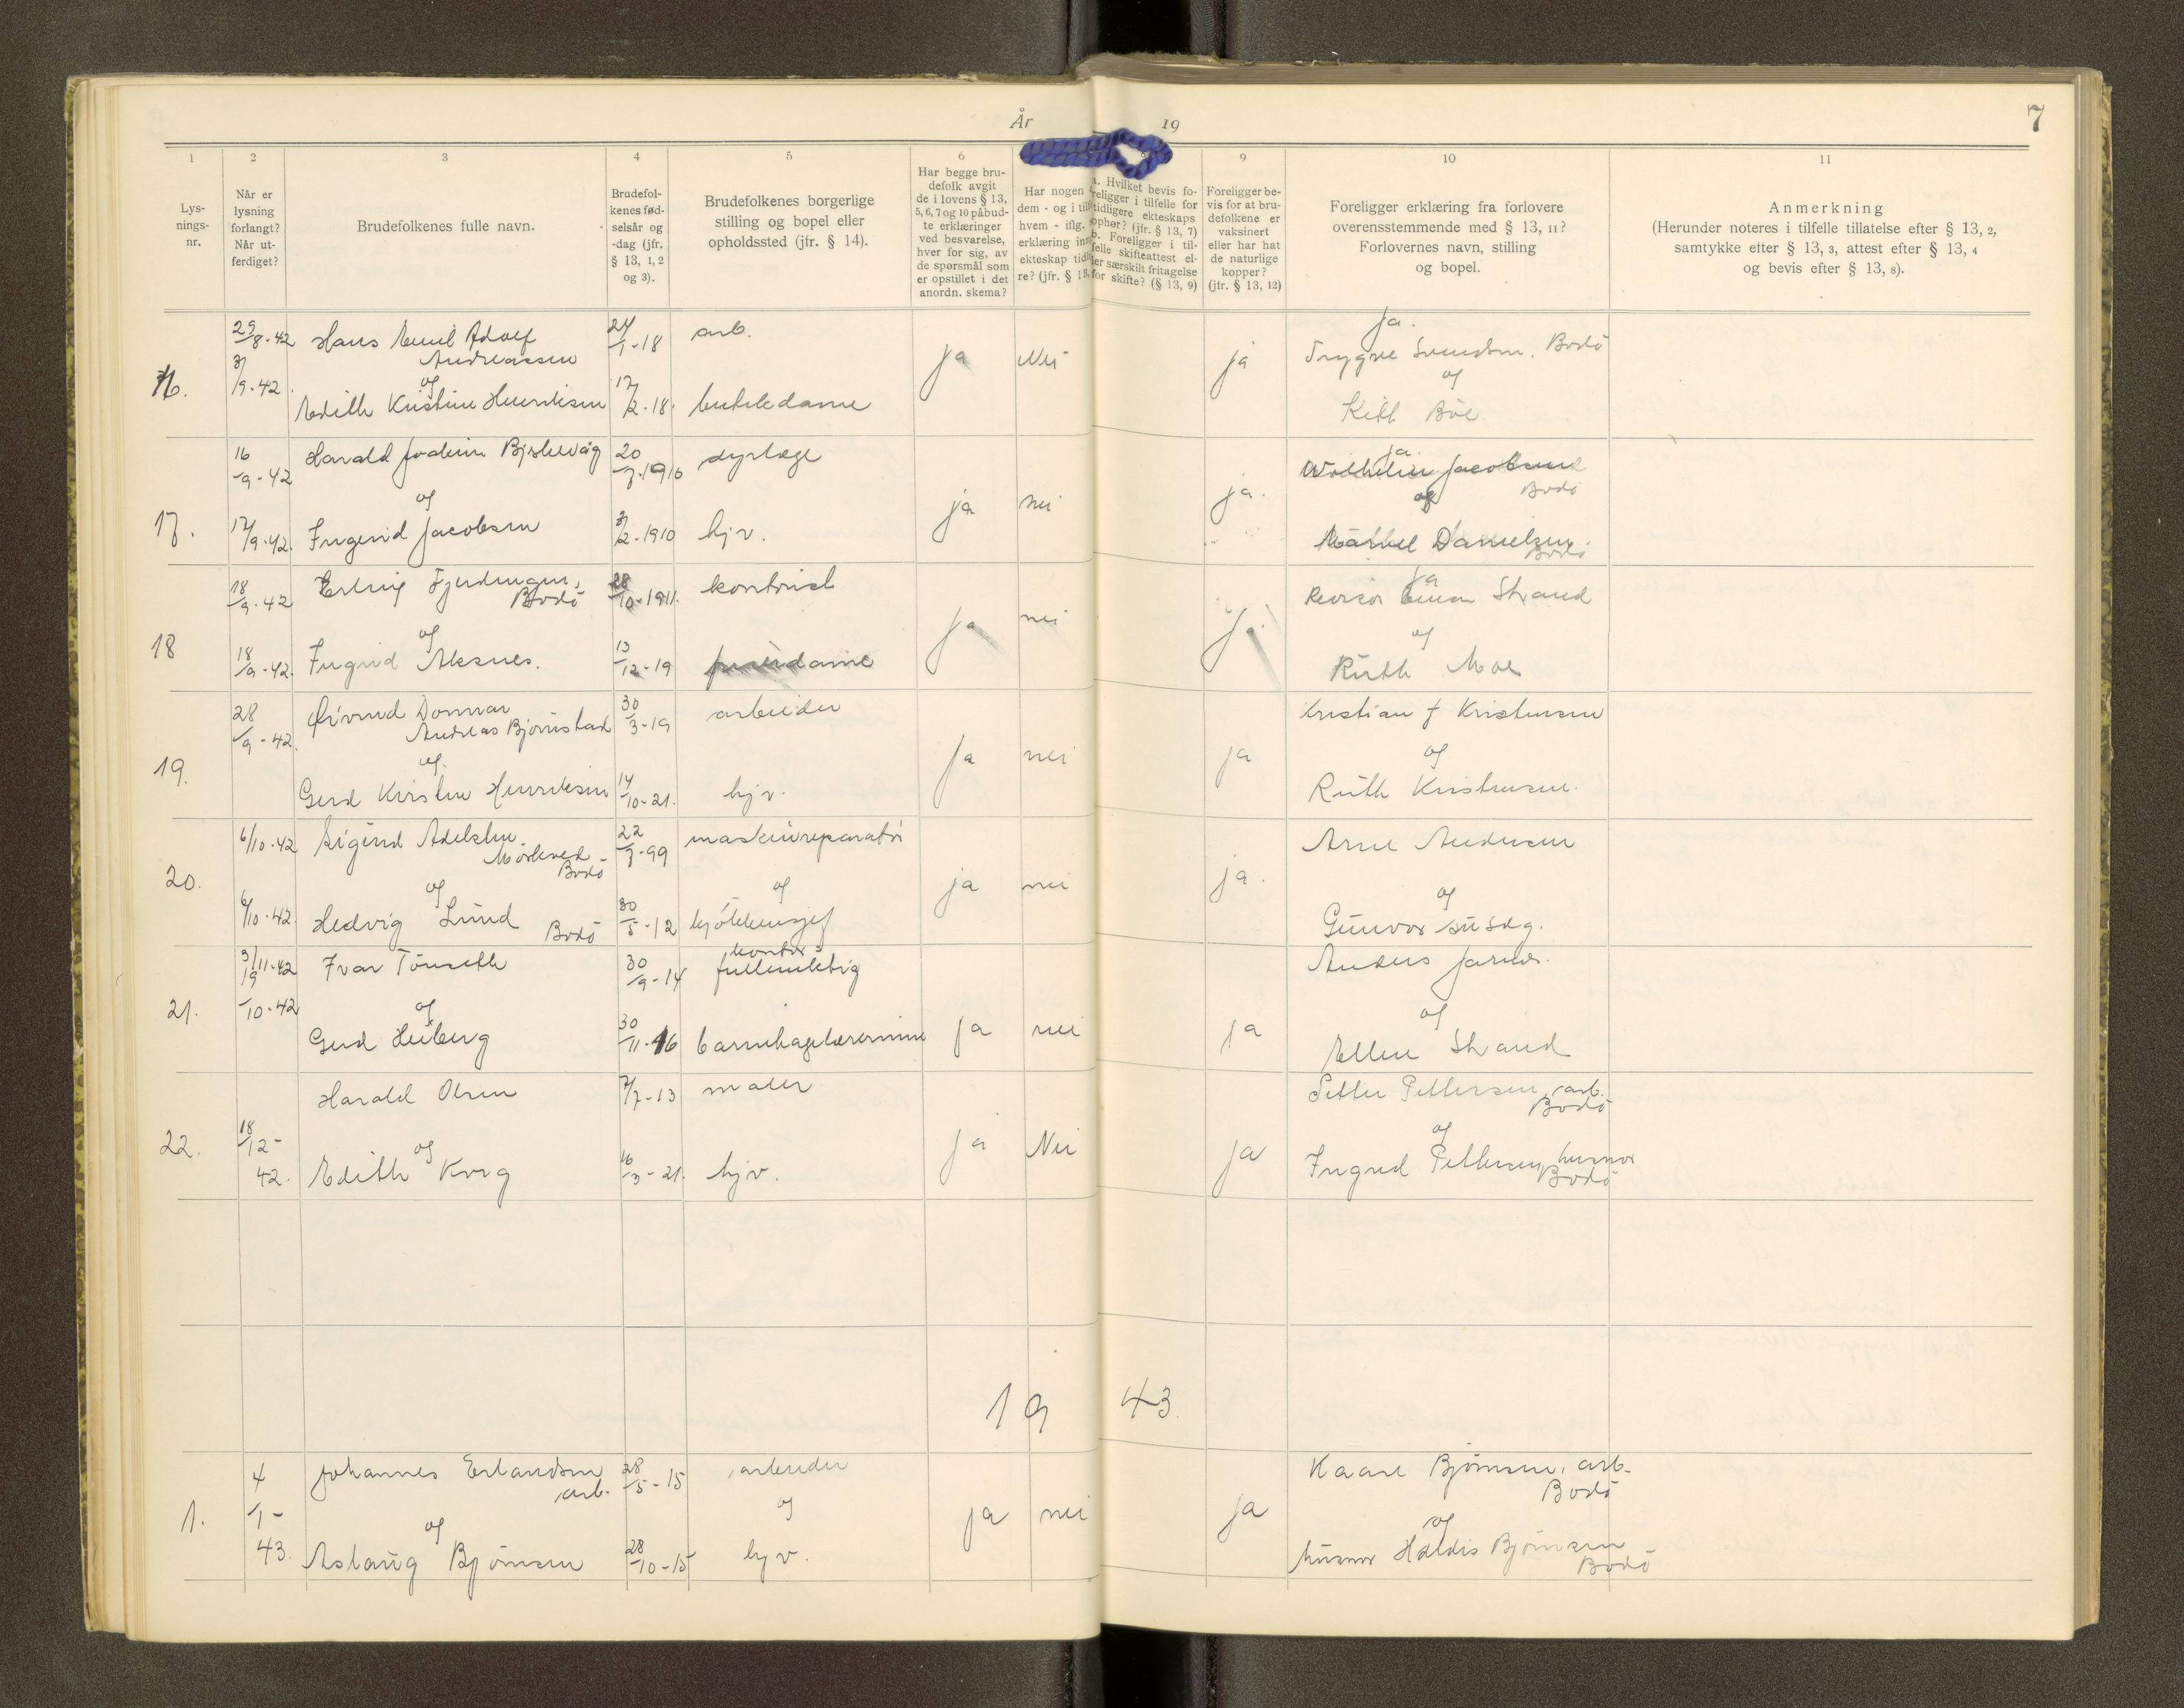 År 19
7
1
2
3
4
5
6
8
9
10
11
Lys-
nings-
nr.
Når er
lysning
forlangt?
Når ut-
ferdiget?
Brudefolkenes fulle navn.
Brudefol-
kenes fød-
selsår og
-dag (jfr.
§ 13, 1, 2
og 3).
Brudefolkenes borgerlige
stilling og bopel eller
opholdssted (jfr. § 14).
Har begge bru-
defolk avgit
de i lovens § 13,
5, 6, 7 og 10 påbud-
te erklæringer
ved besvarelse,
hver for sig, av
de spørsmål som
er opstillet i det
anordn. skema?
Har nogen
dem - og i tilf
hvem - iflg.
erklæring inn
ekteskap tid
re? (jfr. § 13,
a. Hvilket bevis fo-
religger i tilfelle for
tidligere ekteskaps
ophør? (jfr. § 13, 7)
b. Foreligger i til-
felle skifteattest el-
ler særskilt fritagelse
for skifte? (§ 13, 9)
Foreligger be-
vis for at bru-
defolkene er
vaksinert
eller har hat
de naturlige
kopper?
(jfr. § 13, 12)
Foreligger erklæring fra forlovere
overensstemmende med § 13, 11?
Forlovernes navn, stilling
og bopel.
Anmerkning
(Herunder noteres i tilfelle tillatelse efter § 13, 2,
samtykke efter § 13, 3, attest efter § 13, 4
og bevis efter § 13, 8).
16.
29/8-42
3/9-42.
Hans Emil Adolf
Andreassen
og
Edith Kristine Henriksen
24/1-18
17/2-18.
arb.
butikdame
ja
Nei
ja
ja.
Trygve Svendsen. Bodö
og
Kitt Böe
17.
16/9-42
17/9-42.
Harald Joakim
og
Ingerid Jacobsen
20/7-1910
3/2-1910
dyrlæge
hjv.
ja
nei
ja.
ja.
Wilhelm Jacobsen
Bodö
og
Danielsen
Bodö
18
18/9-42
18/9-42.
Erling Fjerdingen,
Bodö
og
Ingrid Aksnes.
28/10-1911.
13/12-19
kontorist
ja
nei
ja.
ja
Revisor Einar Strand
og
Ruth Moe
19.
28/9-42.
Øivind Donnar
Andreas Björnstad
og
Gerd Kirstine Henriksen
30/3-19
14/10-21.
arbeider
hjv.
ja
nei
ja
Kristian J Kristensen
og
Ruth Kristensen.
20.
6/10-42
6/10-42.
Sigurd Adelsten
Mörkved
Bodö
og
Hedvig Lund
Bodö
22/7-99
30/5-12
maskinreparatör
og
kjökkensjef
ja
nei
ja.
Arne Andersen
og
Gunvor
21.
3/11-42
19/10-42
Ivar Tönseth
og
Gerd Heiberg
30/9-14
30/11-16
kontor
fullmektig
barnehagelærerinne
ja
nei
ja
Anders Jarnes.
og
Ellen Strand
22.
18/12-
42.
Harald Olsen
og
Edith Krog
7/7-13
16/3-21.
maler
hjv.
ja
Nei
ja
Petter Pettersen, arb.
Bodö
og
Ingrid Pettersen, husmor
Bodö
19 43.
1.
4/1-
43.
Johannes Erlandsen
arb.
og
Aslaug Björnsen
28/5-15
28/10-15
arbeider
og
hjv.
ja
nei
ja
Kaare Björnsen, arb.
Bodö
og
husmor Haldis Björnsen
Bodö